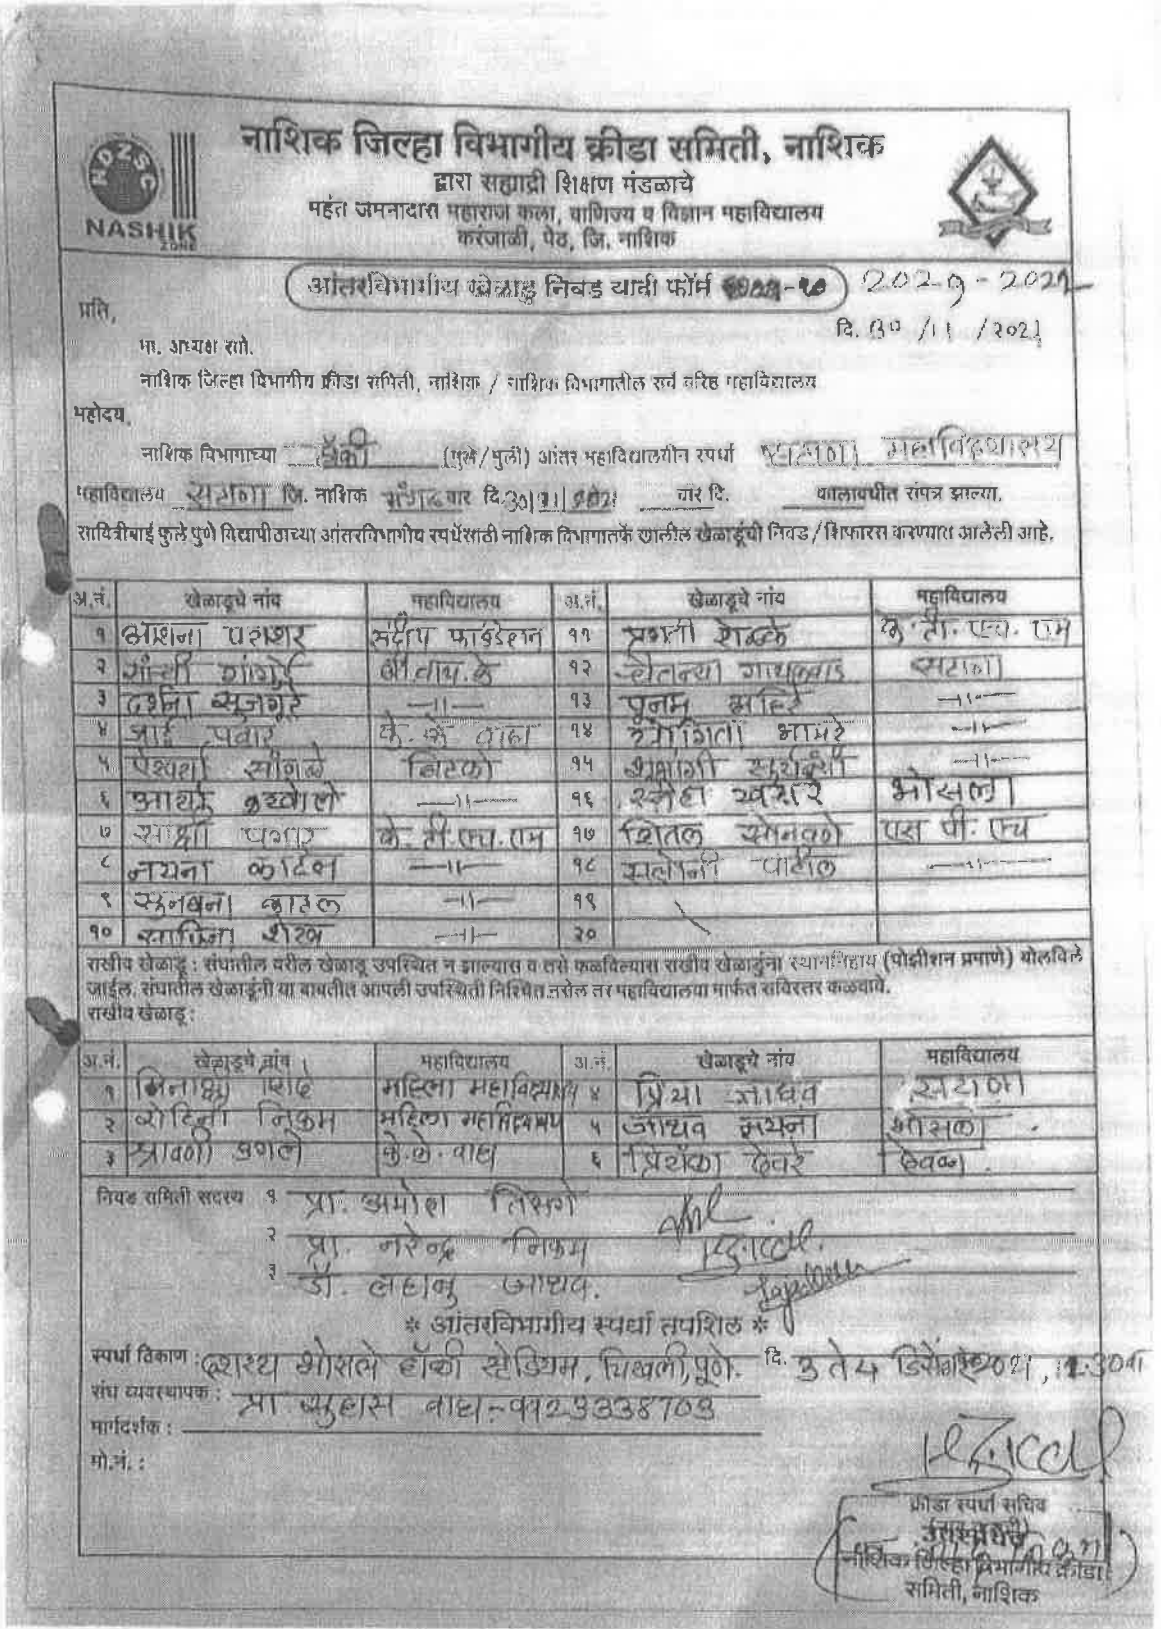 NDZSC
NASHIK
ZONE
नाशिक जिल्हा विभागीय क्रीडा समिती, नाशिक
द्वारा सह्याद्री शिक्षण मंडळाचे
महंत जमनादास महाराज कला, वाणिज्य व विज्ञान महाविद्यालय
करंजाळी, पेठ, जि. नाशिक
आंतरविभागीय खेळाडु निवड यादी फॉर्म 2021-2022
प्रति,
दि. 30/11/2021
मा. अध्यक्ष सो.
नाशिक जिल्हा विभागीय क्रीडा समिती, नाशिक / नाशिक विभागातील सर्व वरिष्ठ महाविद्यालय
महोदय,
नाशिक विभागाच्या हॉकी (मुले/मुली) आंतर महाविद्यालयीन स्पर्धा सटाणा महाविद्यालय
महाविद्यालय सटाणा जि. नाशिक मंगळ वार दि. 30/11/2021 वार दि. कालावधीत संपन्न झाल्या.
सावित्रीबाई फुले पुणे विद्यापीठाच्या आंतरविभागीय स्पर्धेसाठी नाशिक विभागातर्फे खालील खेळाडूंची निवड/शिफारस करण्यात आलेली आहे.
अ.नं. खेळाडूचे नांव महाविद्यालय अ.नं. खेळाडूचे नांव महाविद्यालय
१ पराशर संदीप फाउंडेशन ११ प्रगती शेळके के. टी. एच. एम
२ गांगुर्डे बी.वाय.के १२ चैतन्या गायकवाड सटाणा
३ दर्शना —॥— १३ पूनम अहिरे —॥—
४ जाई पवार के. के वाघ १४ योगिता भामरे —॥—
५ ऐश्वर्या बिटको १५ सूर्यवंशी —॥—
६ —॥— १६ स्नेहा भोसला
७ साक्षी पगार के. टी. एच. एम १७ शितल सोनवणे एस पी. एच
८ नयना —॥— १८ सलोनी पाटील —॥—
९ —॥— १९
१० शेख —॥— २०
राखीव खेळाडू : संघातील वरील खेळाडू उपस्थित न झाल्यास व तसे कळविल्यास राखीव खेळाडूंना स्थाननिहाय (पोझीशन प्रमाणे) बोलविले
जाईल. संघातील खेळाडूंनी या बाबतीत आपली उपस्थिती निश्चित नसेल तर महाविद्यालया मार्फत सविस्तर कळवावे.
राखीव खेळाडू :
अ.नं. खेळाडूचे नांव महाविद्यालय अ.नं. खेळाडूचे नांव महाविद्यालय
१ शिंदे महिला महाविद्यालय ४ प्रिया जाधव सटाणा
२ रोहिनी निकम महिला महाविद्यालय ५ जाधव नयना भोसला
३ श्रावणी के. के. वाघ ६ प्रियंका देवरे देवळा.
निवड समिती सदस्य १ प्रा. अमोल
२ प्रा. नरेन्द्र निकम
३ डॉ. लहानु जाधव.
* आंतरविभागीय स्पर्धा तपशिल *
स्पर्धा ठिकाण : दशरथ भोसले हॉकी स्टेडियम, चिखली, पूणे. दि. 3 ते 4 डिसेंबर 2021,
संघ व्यवस्थापक : प्रा सुहास वाघ - 9923338703
मार्गदर्शक :
मो.नं. :
क्रीडा स्पर्धा सचिव
नाशिक जिल्हा विभागीय क्रीडा
समिती, नाशिक